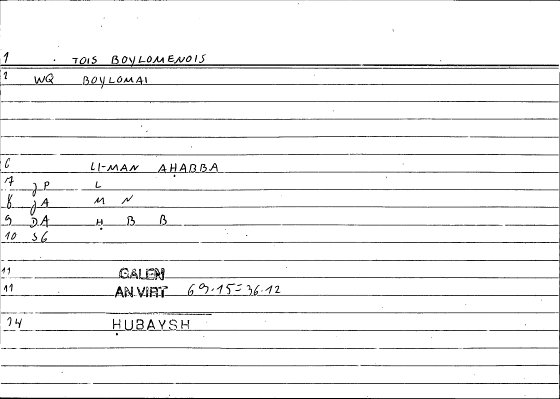 1 TOIS BOYLOMENOIS
2 WQ BOYLOMAI
6 LI-MAN AḤABBA
7 JP L
8 JA M N
9 DA Ḥ B B
10 S6
11 GALEN
11 AN.VIRT 69.15=36.12
14 ḤUBAYSH